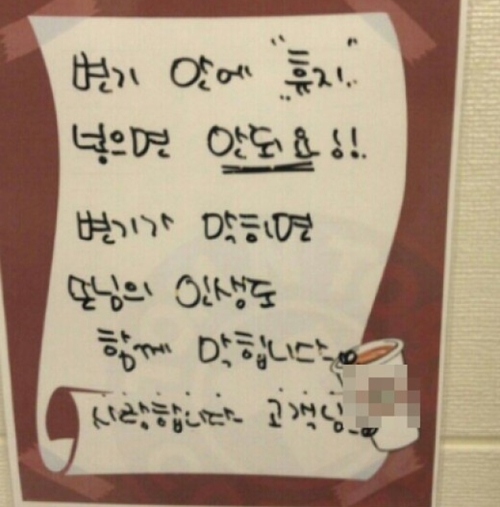 변기 안에 "휴지"
넣으면 안돼요!!
변기가 막히면
손님의 인생도
함께 막힙니다
사랑합니다 고객님